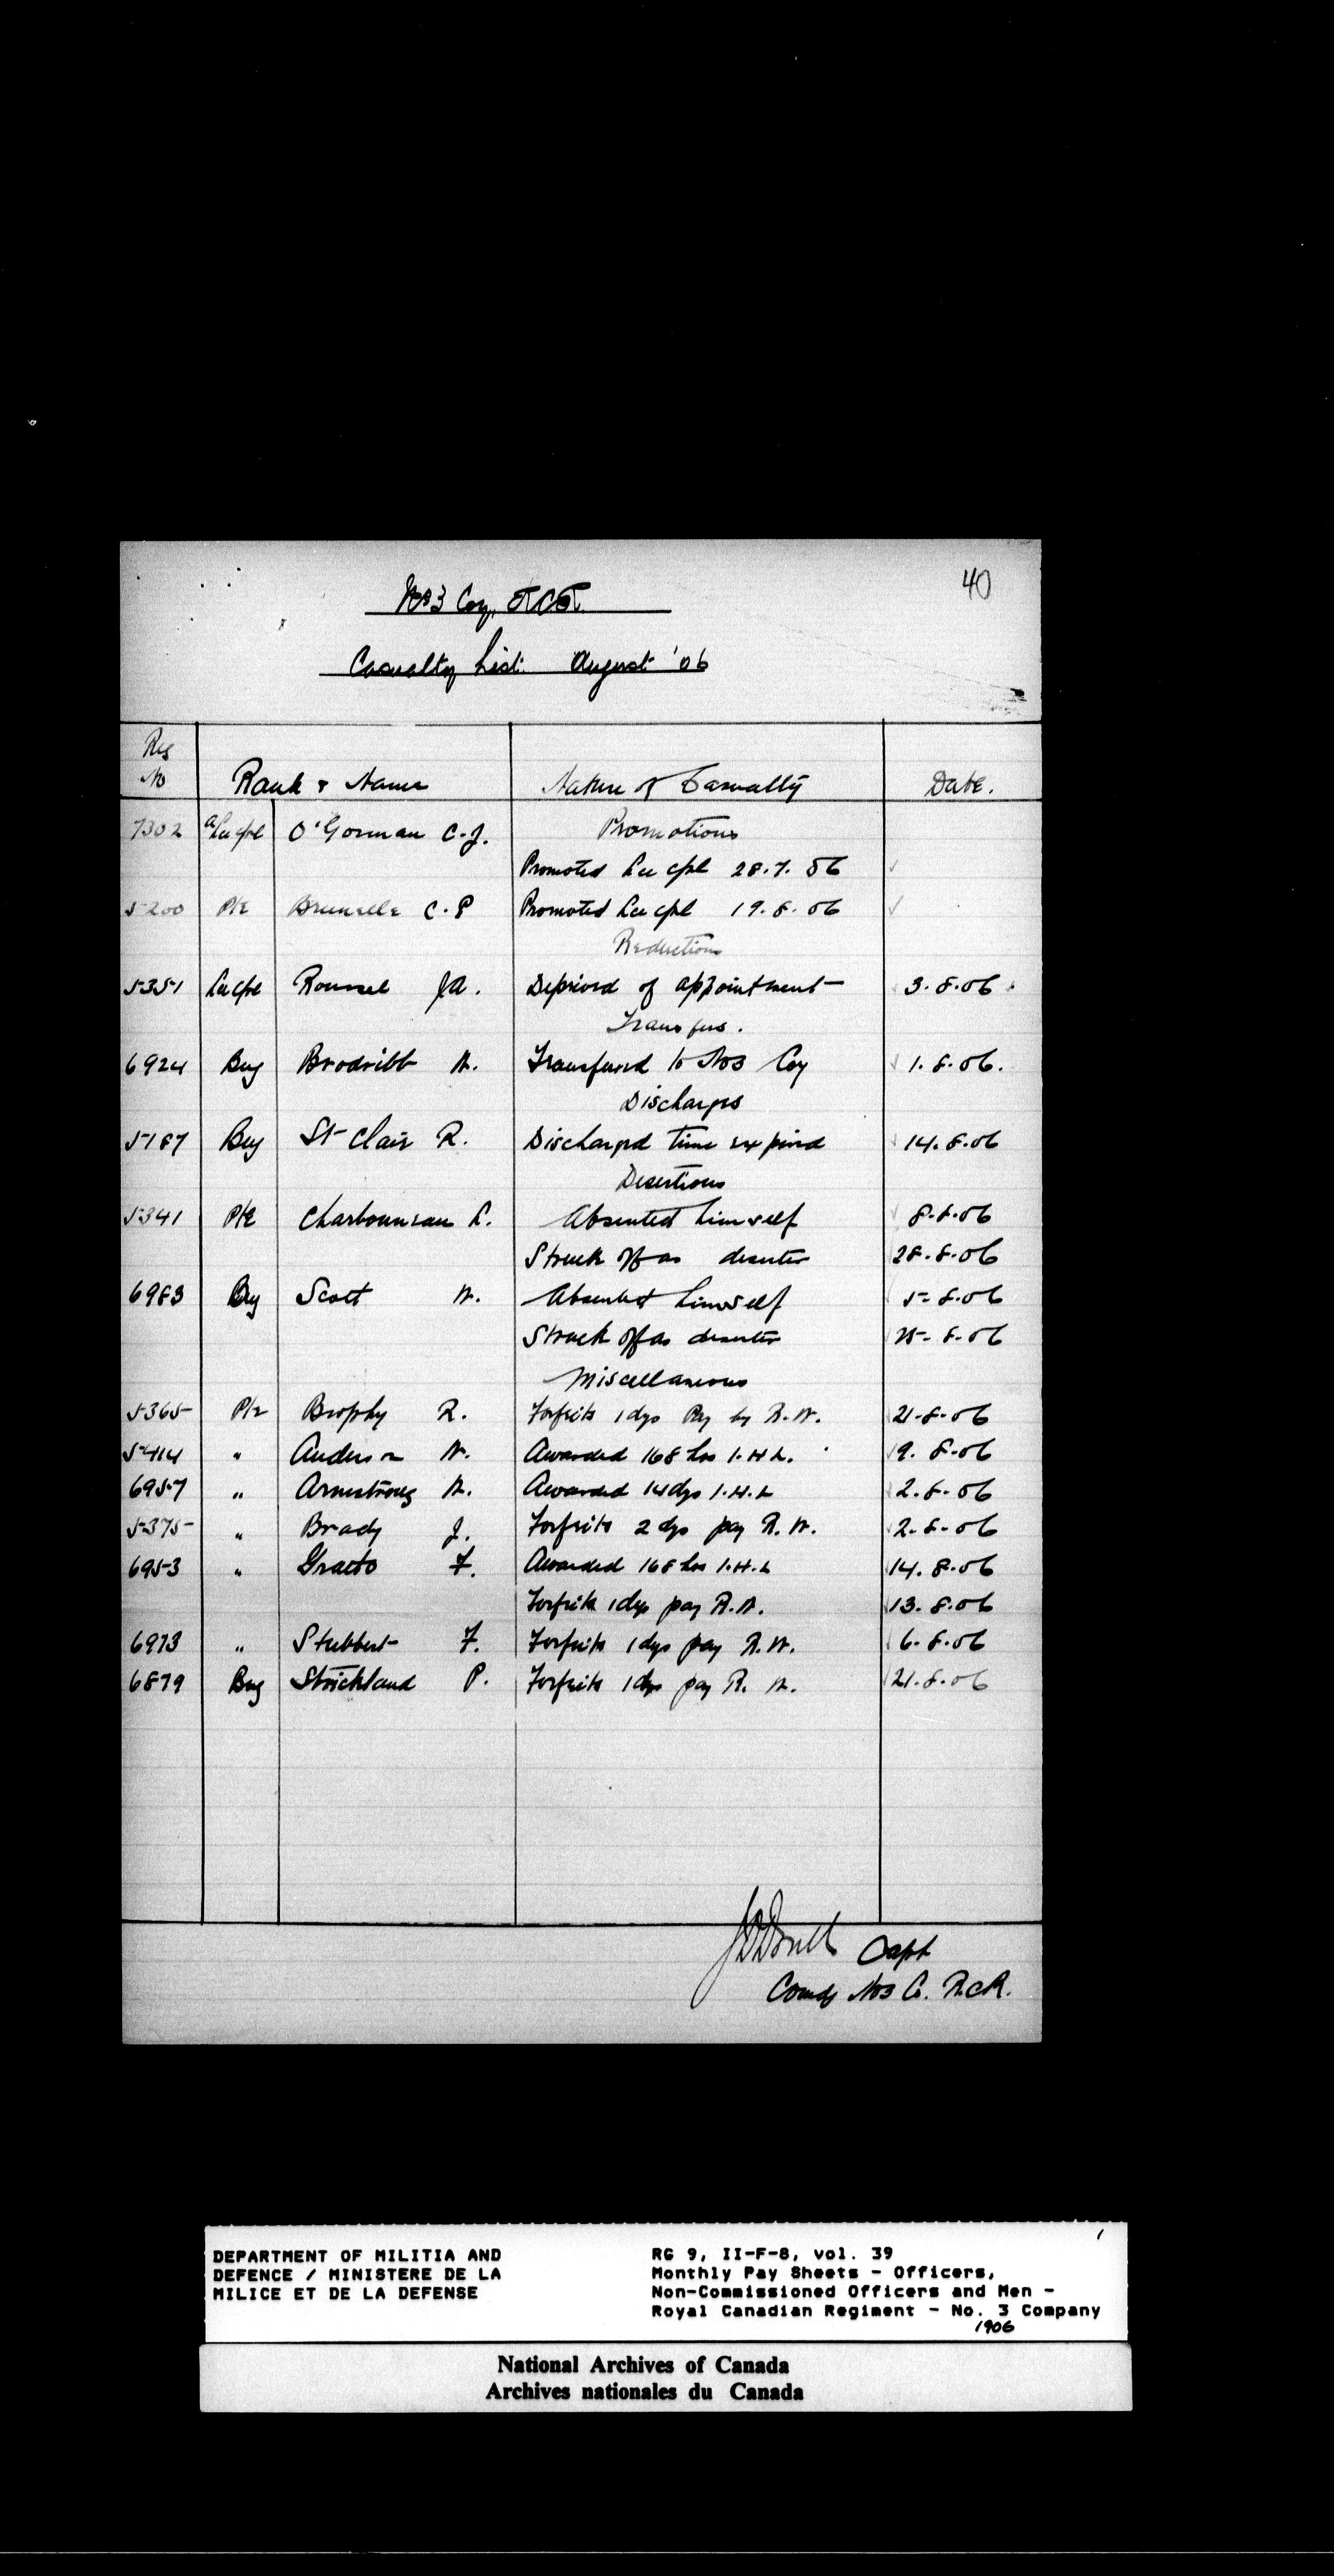 40
No 3 Coy. RCR
Casualty List. August '06
Reg
No Rank & Name Nature of Casualty Date.
7302 a/Lce Cpl O'Gorman C.J. Promotions
Promoted Lce Cpl 28.7.06
5200 Pte Brunelle C.P Promoted Lce Cpl 19.8.06
Reductions
5351 Lce Cpl Roussel J.A. Deprived of appointment 3.8.06
Transfers.
6924 Bug Brodribb W. Transferred to No 3 Coy 1.8.06.
Discharges
5187 Bug St Clair R. Discharged time expired 14.8.06
Desertions
5341 Pte Charbonneau L. Absented himself 8.8.06
Struck off as deserter 28.8.06
6983 Bug Scott W. Absented himself 5-8.06
Struck off as deserter 25-8.06
Miscellaneous
5365 Pte Brophy R. Forfeits 1 dys Pay by R.W. 21-8-06
5414 " Anderson W. Awarded 168 hrs I.H.L. 9.8.06
6957 " Armstrong W. Awarded 14 dys I.H.L 2.8.06
5375 " Brady J. Forfeits 2 dys pay R.W. 2.8.06
6953 " Graeto F. Awarded 168 hrs I.H.L 14.8.06
Forfeits 1 dys pay R.W. 13.8.06
6973 " Stubbert F. Forfeits 1 dys pay R.W. 6.8.06
6879 Bug Strickland P. Forfeits 1 dys pay R.W. 21.8.06
Capt
Comdg No 3 Co. R.C.R.
DEPARTMENT OF MILITIA AND
DEFENCE / MINISTERE DE LA
MILICE ET DE LA DEFENSE
RG 9, II-F-8, vol. 39
Monthly Pay Sheets - Officers,
Non-Commissioned Officers and Men -
Royal Canadian Regiment - No. 3 Company
1906
National Archives of Canada
Archives nationales du Canada